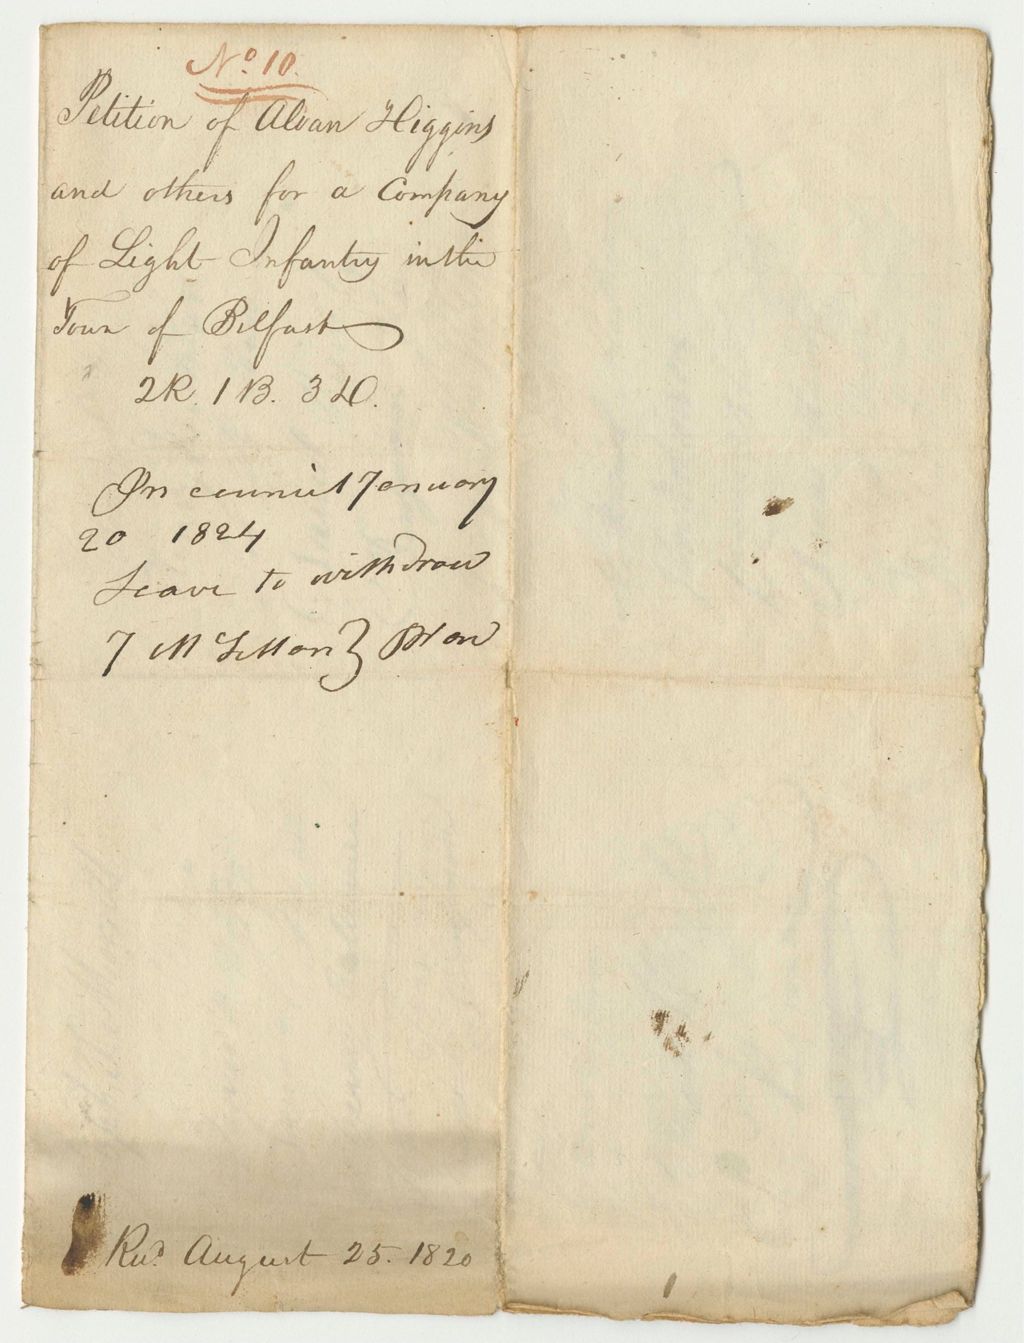 No 10.
Petition of Alvan Higgins
and others for a Company
of Light Infantry in the
Town of Belfast
2R. 1B. 3D.
In council January
20 1824
Leave to withdraw
Recd. August 25. 1820